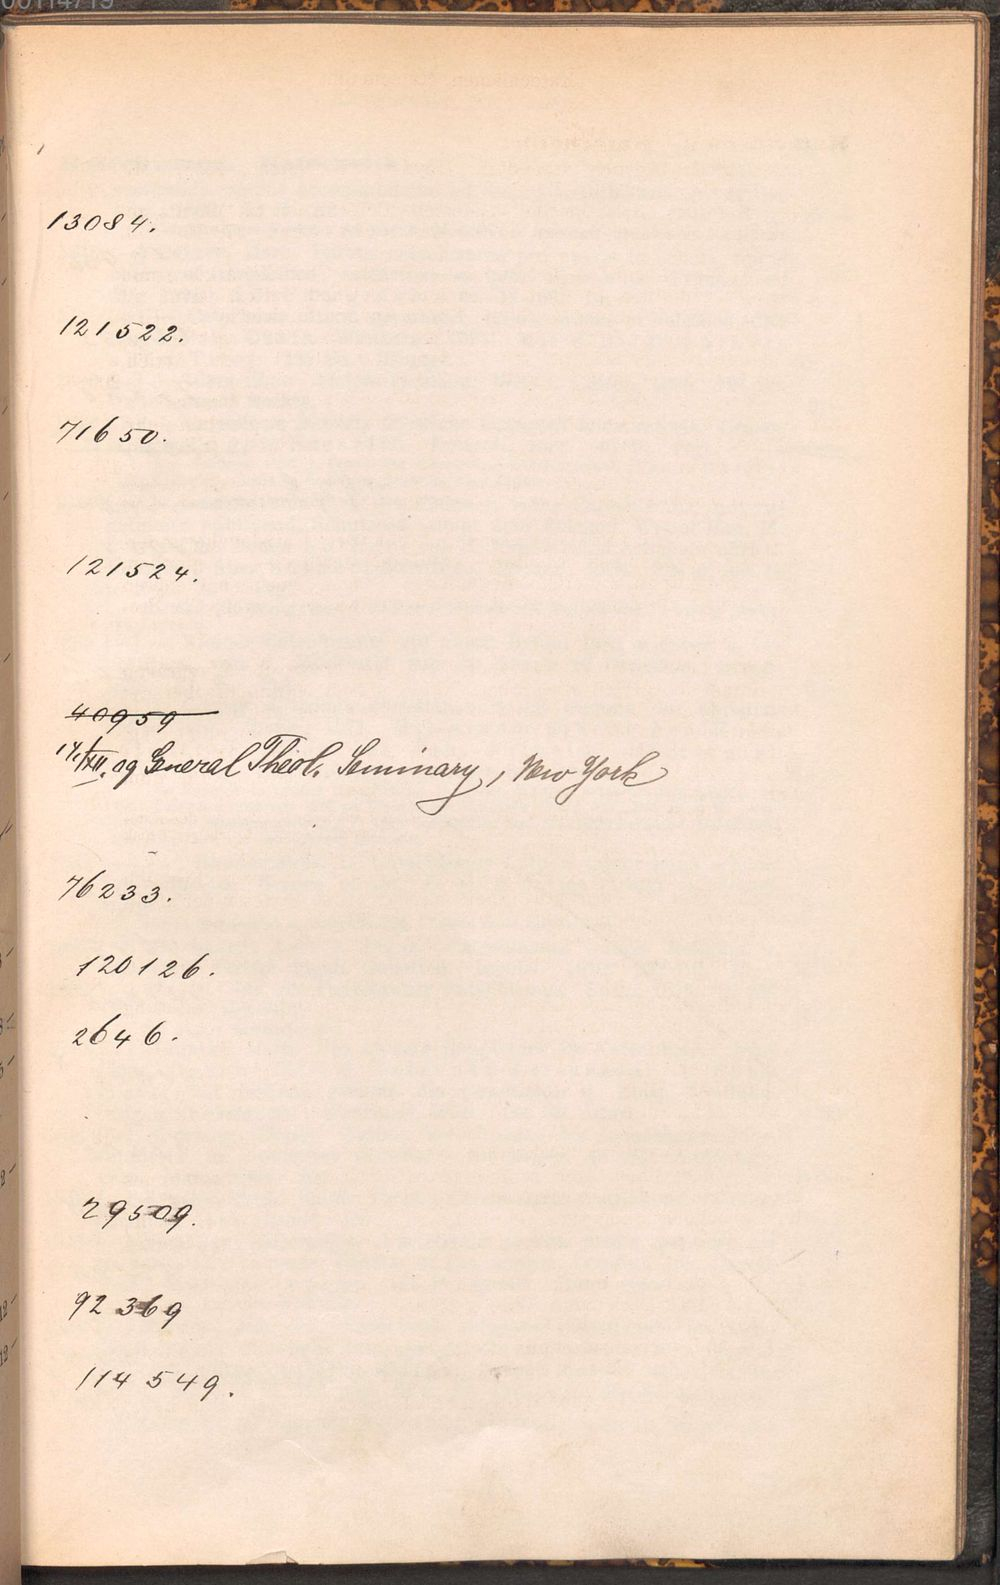 13084.
121522.
71650.
121524.
40959
14/XII. 09 General Theol. Seminary, New York
76233.
120126.
2646.
29509.
92369
114549.